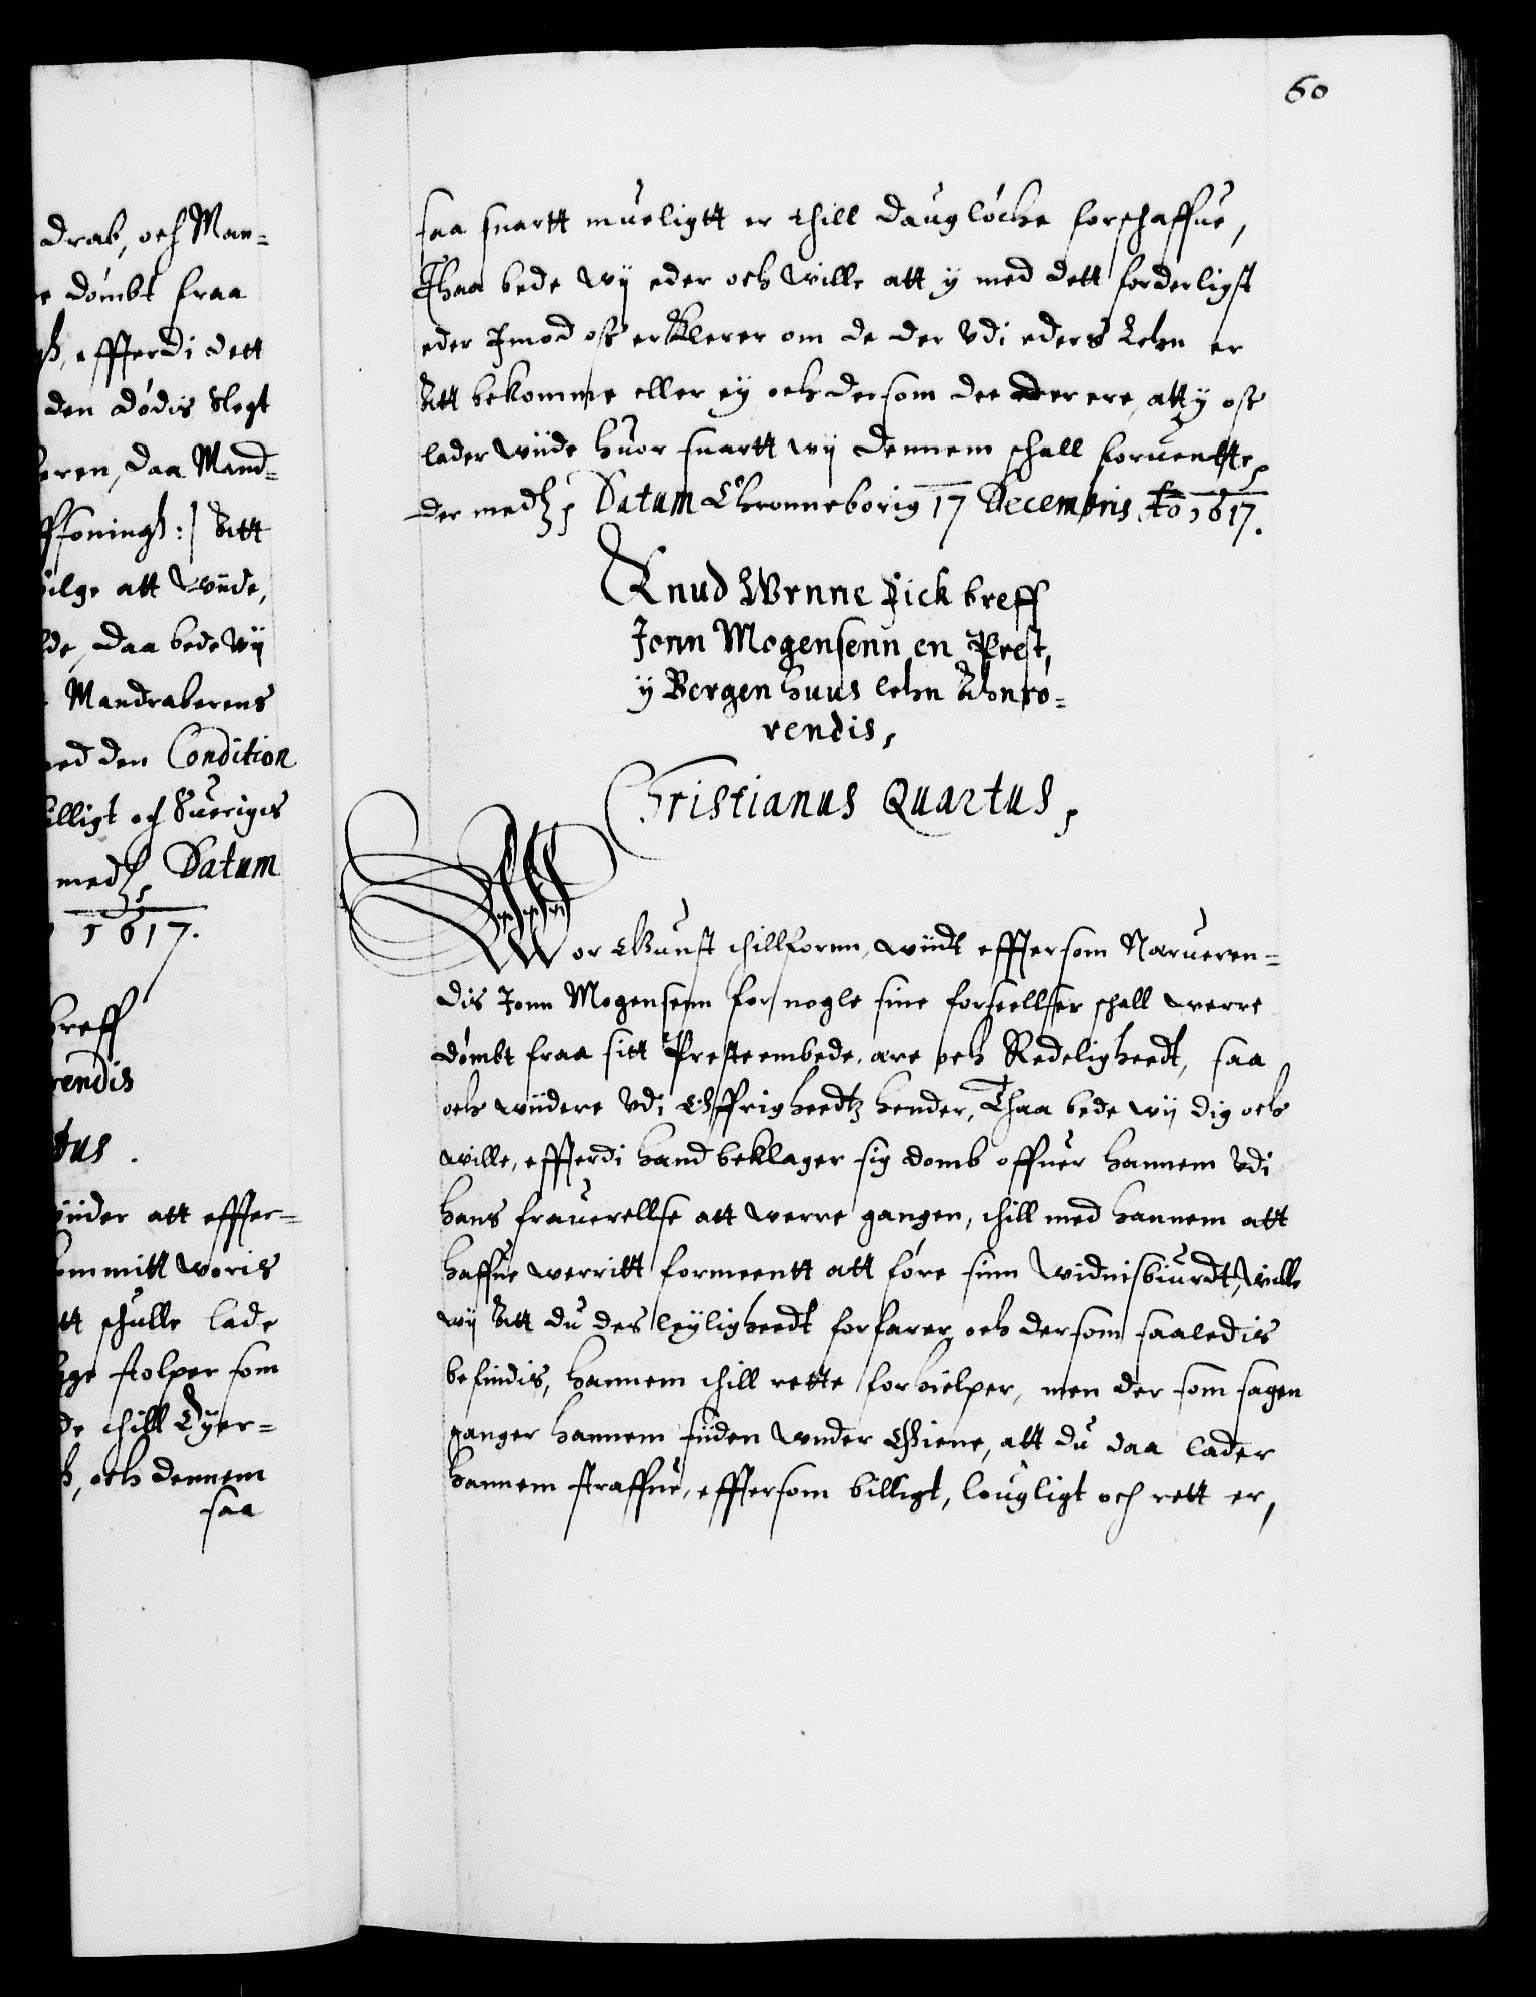 60
drab, och Man-
e dömbt fraa
effterdi dett
den dödis Slegt
eren, daa Mand-
ffoningh :/ Att
ilge att wiide,
lde, daa bede wij
Mandraberens
ed den Condition
illigt och Sueriges
medh, Datum
1617.
breff
rendis
tus.
iider att effter-
kommitt woris
tt schulle lade
ge stolper som
de thill Eyer-
h, och dennem
saa
saa snartt mueligtt er thill daug löcke forschaffue,
Thaa bede wij eder och wille att y med dett forderligst
eder Imod oss erklerer om de der Vdi eders Lehn er
Att bekomme eller ey och dersom dee der ere, att y oss
lader wiide huor snartt wij dennem schall foruentte,
der medh, Datum Chronneborig 17 Decembris Ao 1617.
Knud Wrnne Fick breff
Jonn Mogensenn en Prest,
y Bergen huus lehn Ahnrö-
rendis,
Christianus Quartus,
Wor Gunst thillfornn, wiidt efftersom Narueren-
dis Jonn Mogensenn for nogle sine forseellser schall werre
dömbt fraa sitt Presteembede, ære och Redeligheedt, saa
och wiidere Vdi Öffrigheedtz hender, Thaa bede wij dig och
wille, effterdi hand beklager sig domb offuer hannem Vdi
hans frauerellse att werre gangen, thill med hannem att
haffue werritt formeentt att före sinn Widnisbiurdt, Wille
wij Att du des leyligheedt forfarer, och dersom saaledis
befindis, hannem thill rette forhielper, men der som sagen
ganger hannem siiden wnder Öyene, att du daa lader
hannem straffue, efftersom billigt, lougligt och rett er,